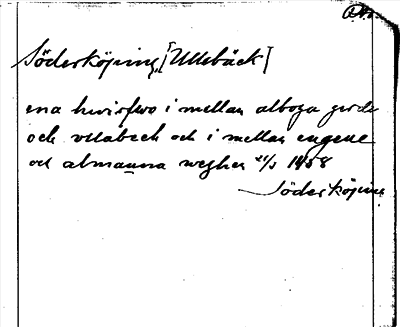 Söderköping [Ullebäck]
ena hwirfwo i mellan alboga gerde
och vllabech och i mellan engene
oc almanna weghen 21/3 1458
Söderköping